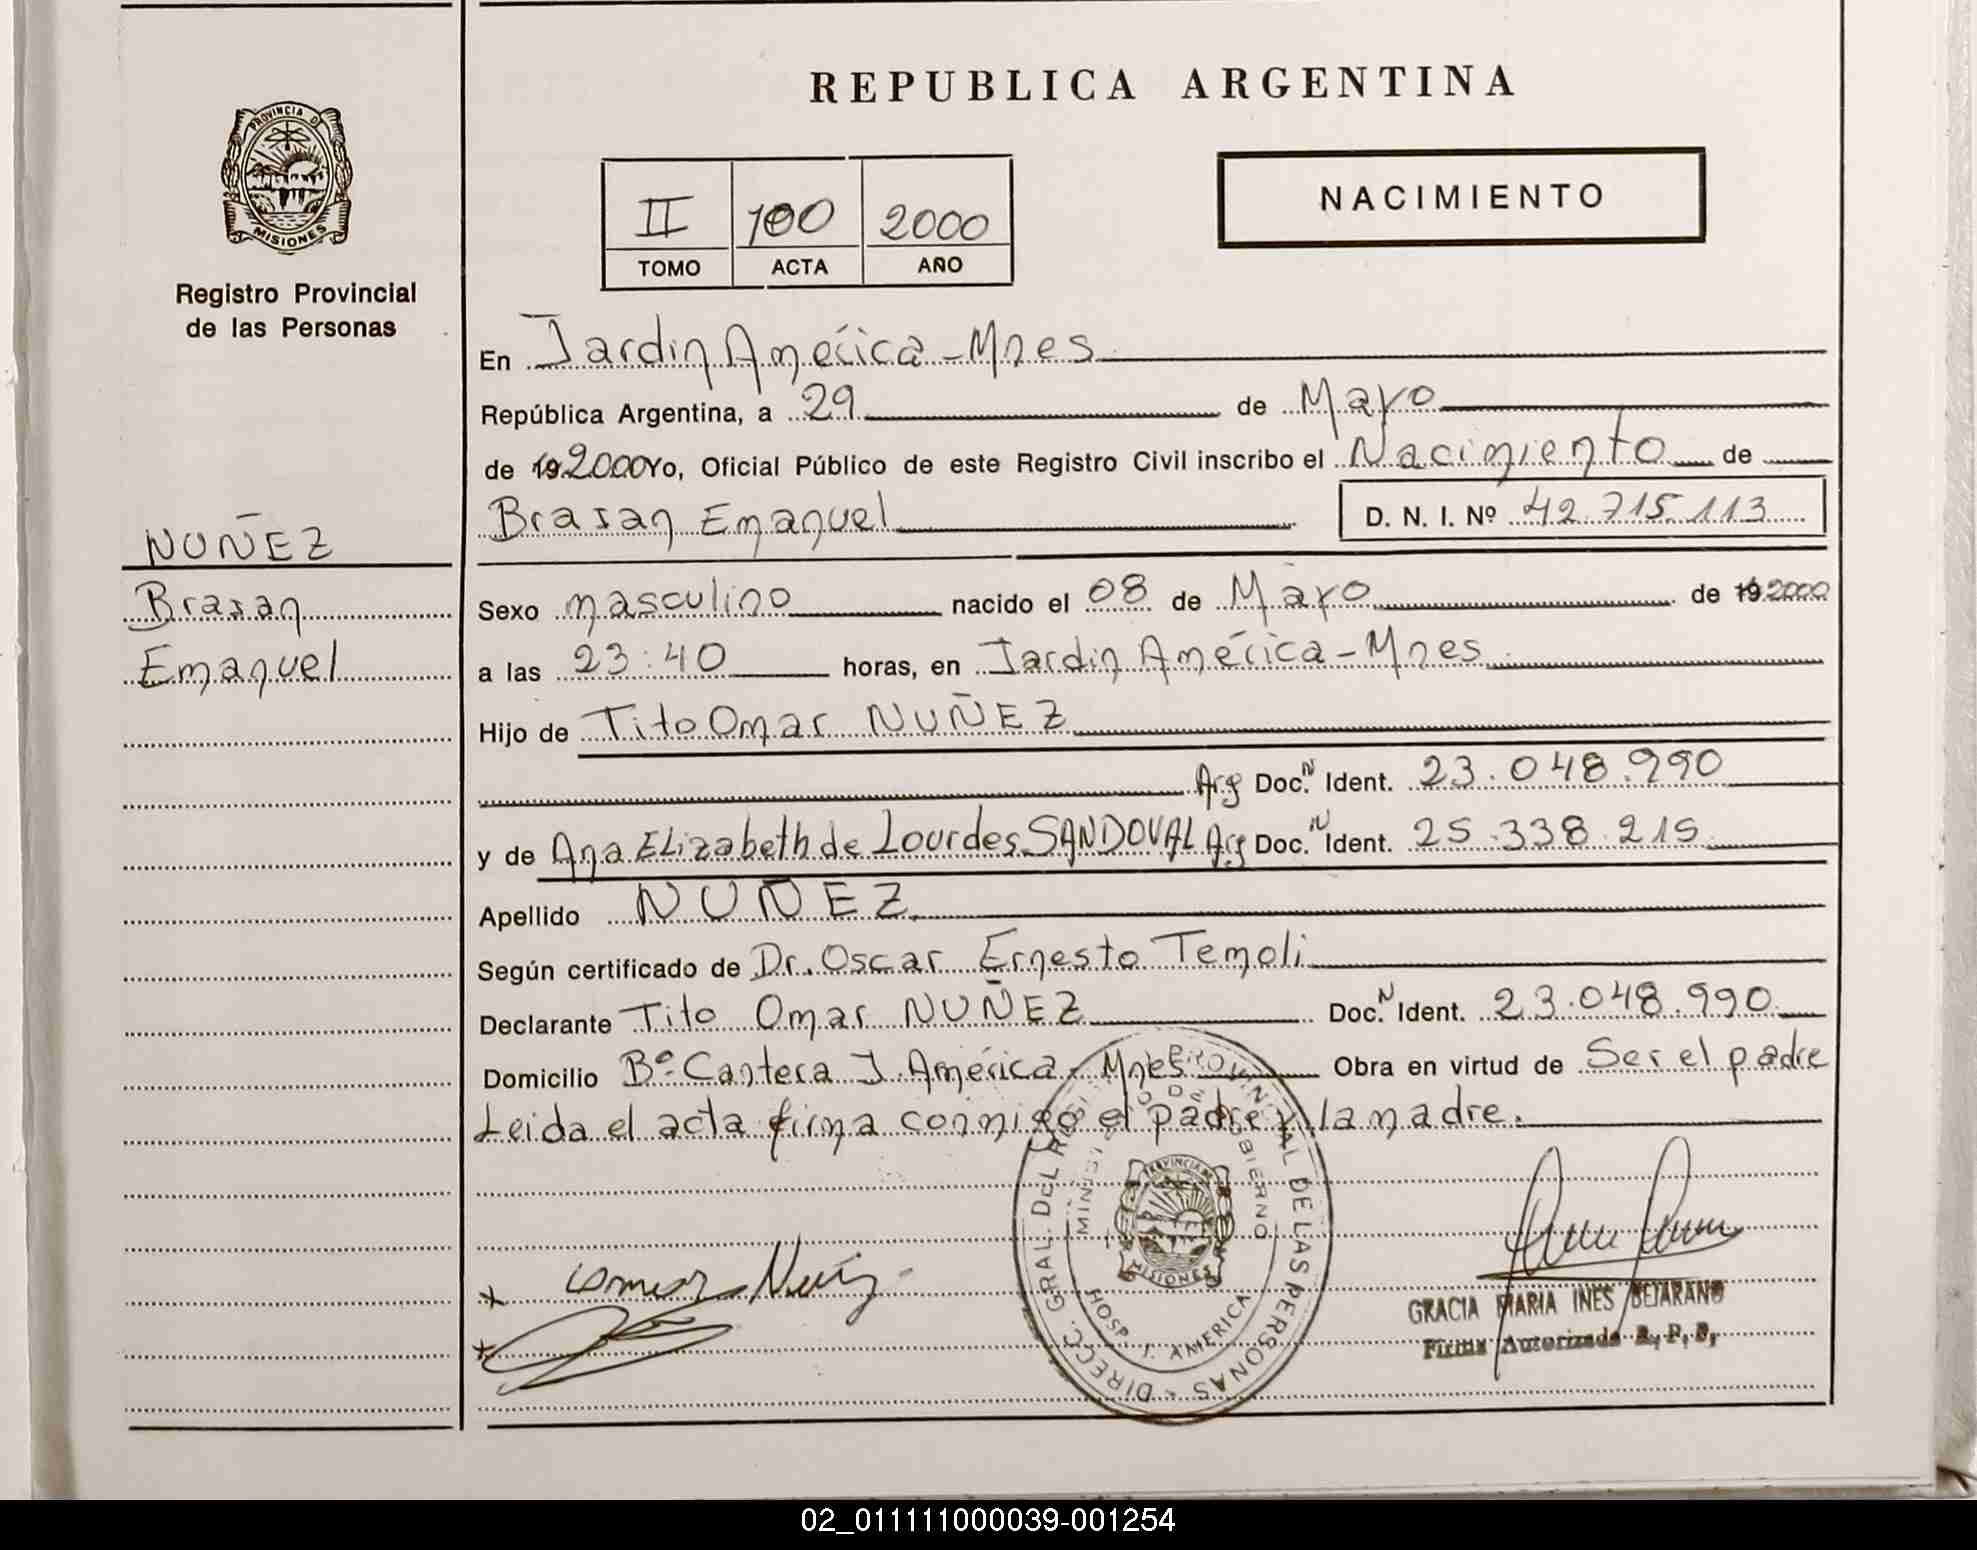 REPUBLICA ARGENTINA
PROVINCIA D
MISIONES
Registro Provincial
de las Personas
II 100 2000
TOMO ACTA AÑO
NACIMIENTO
En Jardin América - Mnes
República Argentina, a 29 de Mayo
de 19 2000 Yo, Oficial Público de este Registro Civil inscribo el Nacimiento de
Brasan Emanuel D. N. I. Nº 42.715.113
NUÑEZ
Brasan
Emanuel
Sexo masculino nacido el 08 de Mayo de 19 2000
a las 23:40 horas, en Jardin América - Mnes
Hijo de Tito Omar NUÑEZ
Arg Doc. N Ident. 23.048.990
y de Ana ELizabeth de Lourdes SANDOVAL Arg Doc. N Ident. 25.338.215
Apellido NUÑEZ
Según certificado de Dr. Oscar Ernesto Temoli
Declarante Tito Omar NUÑEZ Doc. N Ident. 23.048.990
Domicilio Bº Cantera J. América - Mnes Obra en virtud de Ser el padre
Leida el acta firma conmigo el padre y la madre.
DIRECC. GRAL. DEL REG. PROVINCIAL DE LAS PERSONAS
MINIST DE GOBIERNO
PROVINCIA DE
MISIONES
HOSP. J. AMERICA
x Omar Nuñez
x
GRACIA MARIA INES BEJARANO
Firma Autorizada R. P. P.
02_011111000039-001254